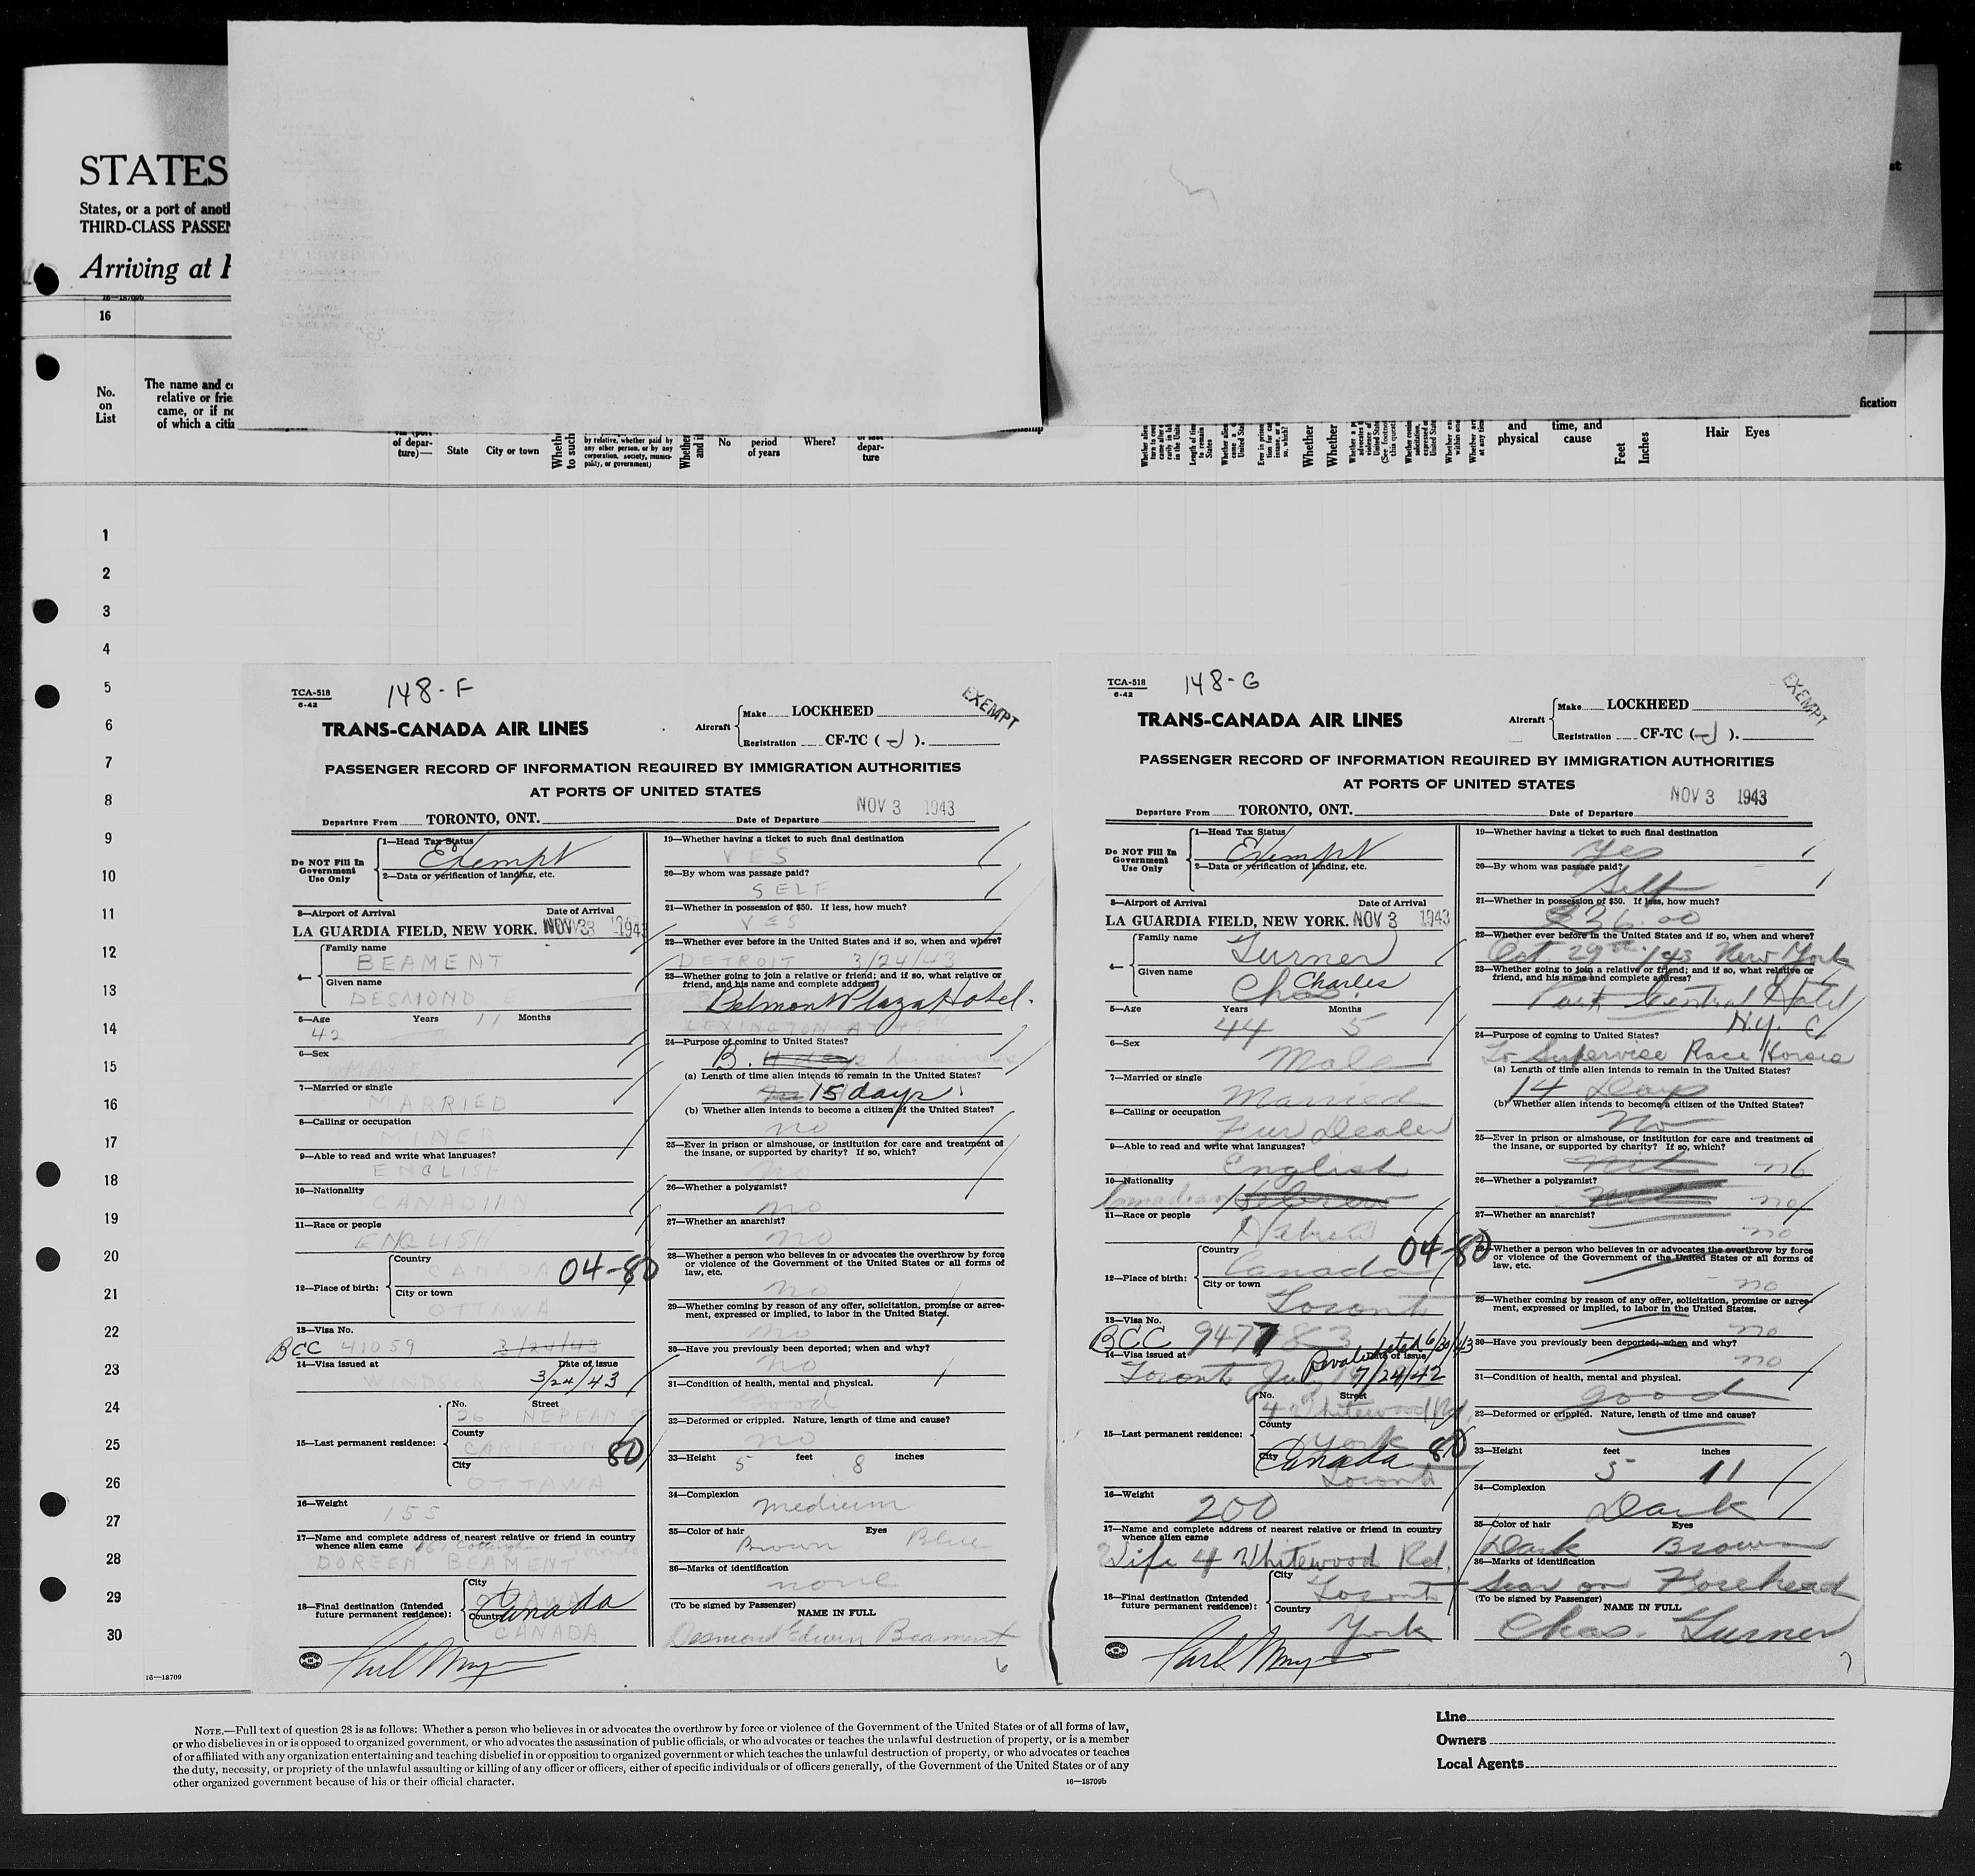 STATES
States, or a port of anoth
THIRD-CLASS PASSEN
Arriving at
16—18709b
16
No.
on
List
The name and c
relative or frie
came, or if no
of which a citi
of depar-
ture)—
State
City or town
Wheth
to such
by relative, whether paid by
any other person, or by any
corporation, society, munici-
pality, or government)
Whether
and i
No
period
of years
Where?
depar-
ture
Whether
Whether
and
physical
time, and
cause
Feet
Inches
Hair
Eyes
fication
1
2
3
4
5
6
7
8
9
10
11
12
13
14
15
16
17
18
19
20
21
22
23
24
25
26
27
28
29
30
16—18709
TCA-518
6-42
148-F
EXEMPT
TRANS-CANADA AIR LINES
Aircraft
Make LOCKHEED
Registration CF-TC ( -J ).
PASSENGER RECORD OF INFORMATION REQUIRED BY IMMIGRATION AUTHORITIES
AT PORTS OF UNITED STATES
NOV 3 1943
Departure From TORONTO, ONT. Date of Departure
Do NOT Fill In
Government
Use Only
1—Head Tax Status
Exempt
2—Data or verification of landing, etc.
3—Airport of Arrival Date of Arrival
LA GUARDIA FIELD, NEW YORK. NOV 3 1943
4—
Family name
BEAMENT
Given name
DESMOND E
5—Age Years Months
42 11
6—Sex
7—Married or single
MARRIED
8—Calling or occupation
MINER
9—Able to read and write what languages?
ENGLISH
10—Nationality
CANADIAN
11—Race or people
ENGLISH
12—Place of birth:
Country
CANADA 04-80
City or town
OTTAWA
13—Visa No.
BCC 41059 3/24/43
14—Visa issued at Date of issue
WINDSOR 3/24/43
15—Last permanent residence:
No. Street
26 NEPEAN ST
County
CARLETON 80
City
OTTAWA
16—Weight
155
17—Name and complete address of nearest relative or friend in country
whence alien came 167 Cottingham Toronto
DOREEN BEAMENT
18—Final destination (Intended
future permanent residence):
City
OTTAWA
Country
Canada
CANADA
19—Whether having a ticket to such final destination
YES
20—By whom was passage paid?
SELF
21—Whether in possession of $50. If less, how much?
YES
22—Whether ever before in the United States and if so, when and where?
DETROIT 3/24/43
23—Whether going to join a relative or friend; and if so, what relative or
friend, and his name and complete address?
Belmont Plaza Hotel.
LEXINGTON AT 49
24—Purpose of coming to United States?
B. business
(a) Length of time alien intends to remain in the United States?
15 days
(b) Whether alien intends to become a citizen of the United States?
no
25—Ever in prison or almshouse, or institution for care and treatment of
the insane, or supported by charity? If so, which?
no
26—Whether a polygamist?
no
27—Whether an anarchist?
no
28—Whether a person who believes in or advocates the overthrow by force
or violence of the Government of the United States or all forms of
law, etc.
no
29—Whether coming by reason of any offer, solicitation, promise or agree-
ment, expressed or implied, to labor in the United States.
no
30—Have you previously been deported; when and why?
no
31—Condition of health, mental and physical.
good
32—Deformed or crippled. Nature, length of time and cause?
no
33—Height 5 feet 8 inches
34—Complexion
medium
35—Color of hair Eyes
Brown Blue
36—Marks of identification
none
(To be signed by Passenger)
NAME IN FULL
Desmond Edwin Beament
6
TCA-518
6-42
148-G
EXEMPT
TRANS-CANADA AIR LINES
Aircraft
Make LOCKHEED
Registration CF-TC ( -J ).
PASSENGER RECORD OF INFORMATION REQUIRED BY IMMIGRATION AUTHORITIES
AT PORTS OF UNITED STATES
NOV 3 1943
Departure From TORONTO, ONT. Date of Departure
Do NOT Fill In
Government
Use Only
1—Head Tax Status
Exempt
2—Data or verification of landing, etc.
3—Airport of Arrival Date of Arrival
LA GUARDIA FIELD, NEW YORK. NOV 3 1943
4—
Family name
Turner
Given name
Chas. Charles
5—Age Years Months
44 5
6—Sex
Male
7—Married or single
Married
8—Calling or occupation
Fur Dealer
9—Able to read and write what languages?
English
10—Nationality
Canadian Hebrew
11—Race or people
Hebrew
12—Place of birth:
Country
Canada 04-80
City or town
Toronto
13—Visa No.
BCC 947783
Revalidated 6/30/43
14—Visa issued at Date of issue
Toronto July 7/24/42
15—Last permanent residence:
No. Street
4 Whitewood Rd.
County
York 80
City
Canada
Toronto
16—Weight
200
17—Name and complete address of nearest relative or friend in country
whence alien came
Wife 4 Whitewood Rd.
18—Final destination (Intended
future permanent residence):
City
Toronto
Country
York
19—Whether having a ticket to such final destination
Yes
20—By whom was passage paid?
Self
21—Whether in possession of $50. If less, how much?
$26.00
22—Whether ever before in the United States and if so, when and where?
Oct. 29th /43 New York
23—Whether going to join a relative or friend; and if so, what relative or
friend, and his name and complete address?
Park Central Hotel
N.Y. C
24—Purpose of coming to United States?
To Supervise Race Horses
(a) Length of time alien intends to remain in the United States?
14 Days
(b) Whether alien intends to become a citizen of the United States?
No
25—Ever in prison or almshouse, or institution for care and treatment of
the insane, or supported by charity? If so, which?
no
26—Whether a polygamist?
no
27—Whether an anarchist?
no
28—Whether a person who believes in or advocates the overthrow by force
or violence of the Government of the United States or all forms of
law, etc.
no
29—Whether coming by reason of any offer, solicitation, promise or agree-
ment, expressed or implied, to labor in the United States.
no
30—Have you previously been deported; when and why?
no
31—Condition of health, mental and physical.
good
32—Deformed or crippled. Nature, length of time and cause?
33—Height feet inches
5 11
34—Complexion
Dark
35—Color of hair Eyes
Dark Brown
36—Marks of identification
Scar on Forehead
(To be signed by Passenger)
NAME IN FULL
Chas. Turner
7
NOTE.—Full text of question 28 is as follows: Whether a person who believes in or advocates the overthrow by force or violence of the Government of the United States or of all forms of law,
or who disbelieves in or is opposed to organized government, or who advocates the assassination of public officials, or who advocates or teaches the unlawful destruction of property, or is a member
of or affiliated with any organization entertaining and teaching disbelief in or opposition to organized government or which teaches the unlawful destruction of property, or who advocates or teaches
the duty, necessity, or propriety of the unlawful assaulting or killing of any officer or officers, either of specific individuals or of officers generally, of the Government of the United States or of any
other organized government because of his or their official character.
16—18709b
Line
Owners
Local Agents